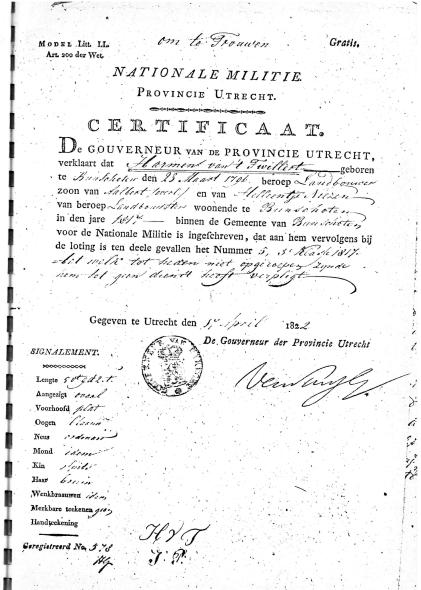 MODEL Litt. LL.
Art. 200 der Wet.
om te Trouwen
Gratis.
NATIONALE MILITIE.
PROVINCIE UTRECHT.
CERTIFICAAT.
DE GOUVERNEUR VAN DE PROVINCIE UTRECHT,
verklaart dat Harmen van 't Twillert geboren
te Bunschoten den 28 Maart 1796 beroep Landbouwer
zoon van Aalbert (over.) en van Huizen
van beroep woonende te Bunschoten
in den jare 181 binnen de Gemeente van Bunschoten
voor de Nationale Militie is ingeschreven, dat aan hem vervolgens bij
de loting is ten deele gevallen het Nummer 5, 1817.
tot heden niet opgeroepen zynde
hem tot geen dienst heeft verpligt
Gegeven te Utrecht den April 1822
De Gouverneur der Provincie Utrecht
SIGNALEMENT.
Lengte
Aangezigt ovaal
Voorhoofd plat
Oogen blaauw
Neus ordinair
Mond idem
Kin
Haar bruin
Wenkbraauwen idem
Merkbare teekenen geen
Handteekening
H V T
Geregistreerd No. 578